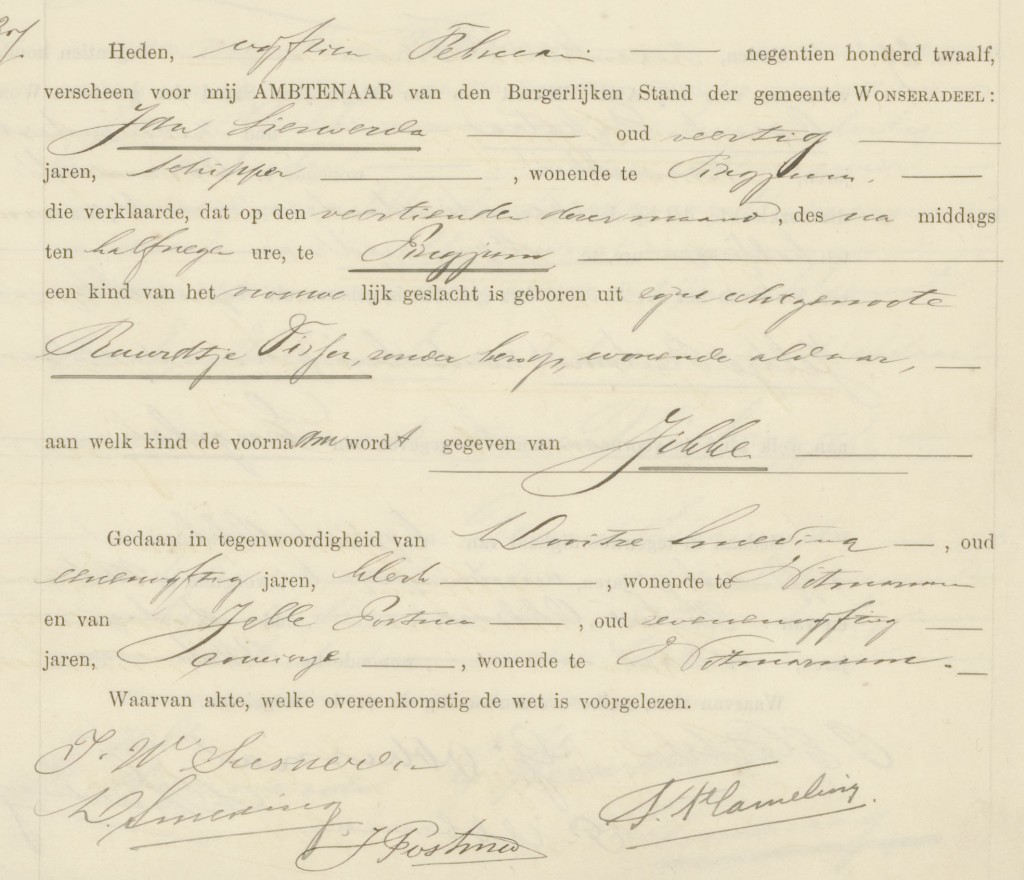 Heden, vijftien Februari negentien honderd twaalf,
verscheen voor mij AMBTENAAR van den Burgerlijken Stand der gemeente WONSERADEEL:
Jan Sieswerda oud veertig
jaren, schipper, wonende te Pingjum.
die verklaarde, dat op den veertienden dezer maand, des na middags
ten half negen ure, te Pingjum
een kind van het vrouwe lijk geslacht is geboren uit zijne echtgenoote
Ruurdtje Visser, zonder beroep, wonende aldaar,
aan welk kind de voornaam wordt gegeven van Jikke
Gedaan in tegenwoordigheid van Wooitze Smeding, oud
eenenvijftig jaren, klerk, wonende te Witmarsum
en van Jelle Postma, oud zevenenvijftig
jaren, wonende te Witmarsum.
Waarvan akte, welke overeenkomstig de wet is voorgelezen.
J. W. Sieswerda
W. Smeding
J Postma